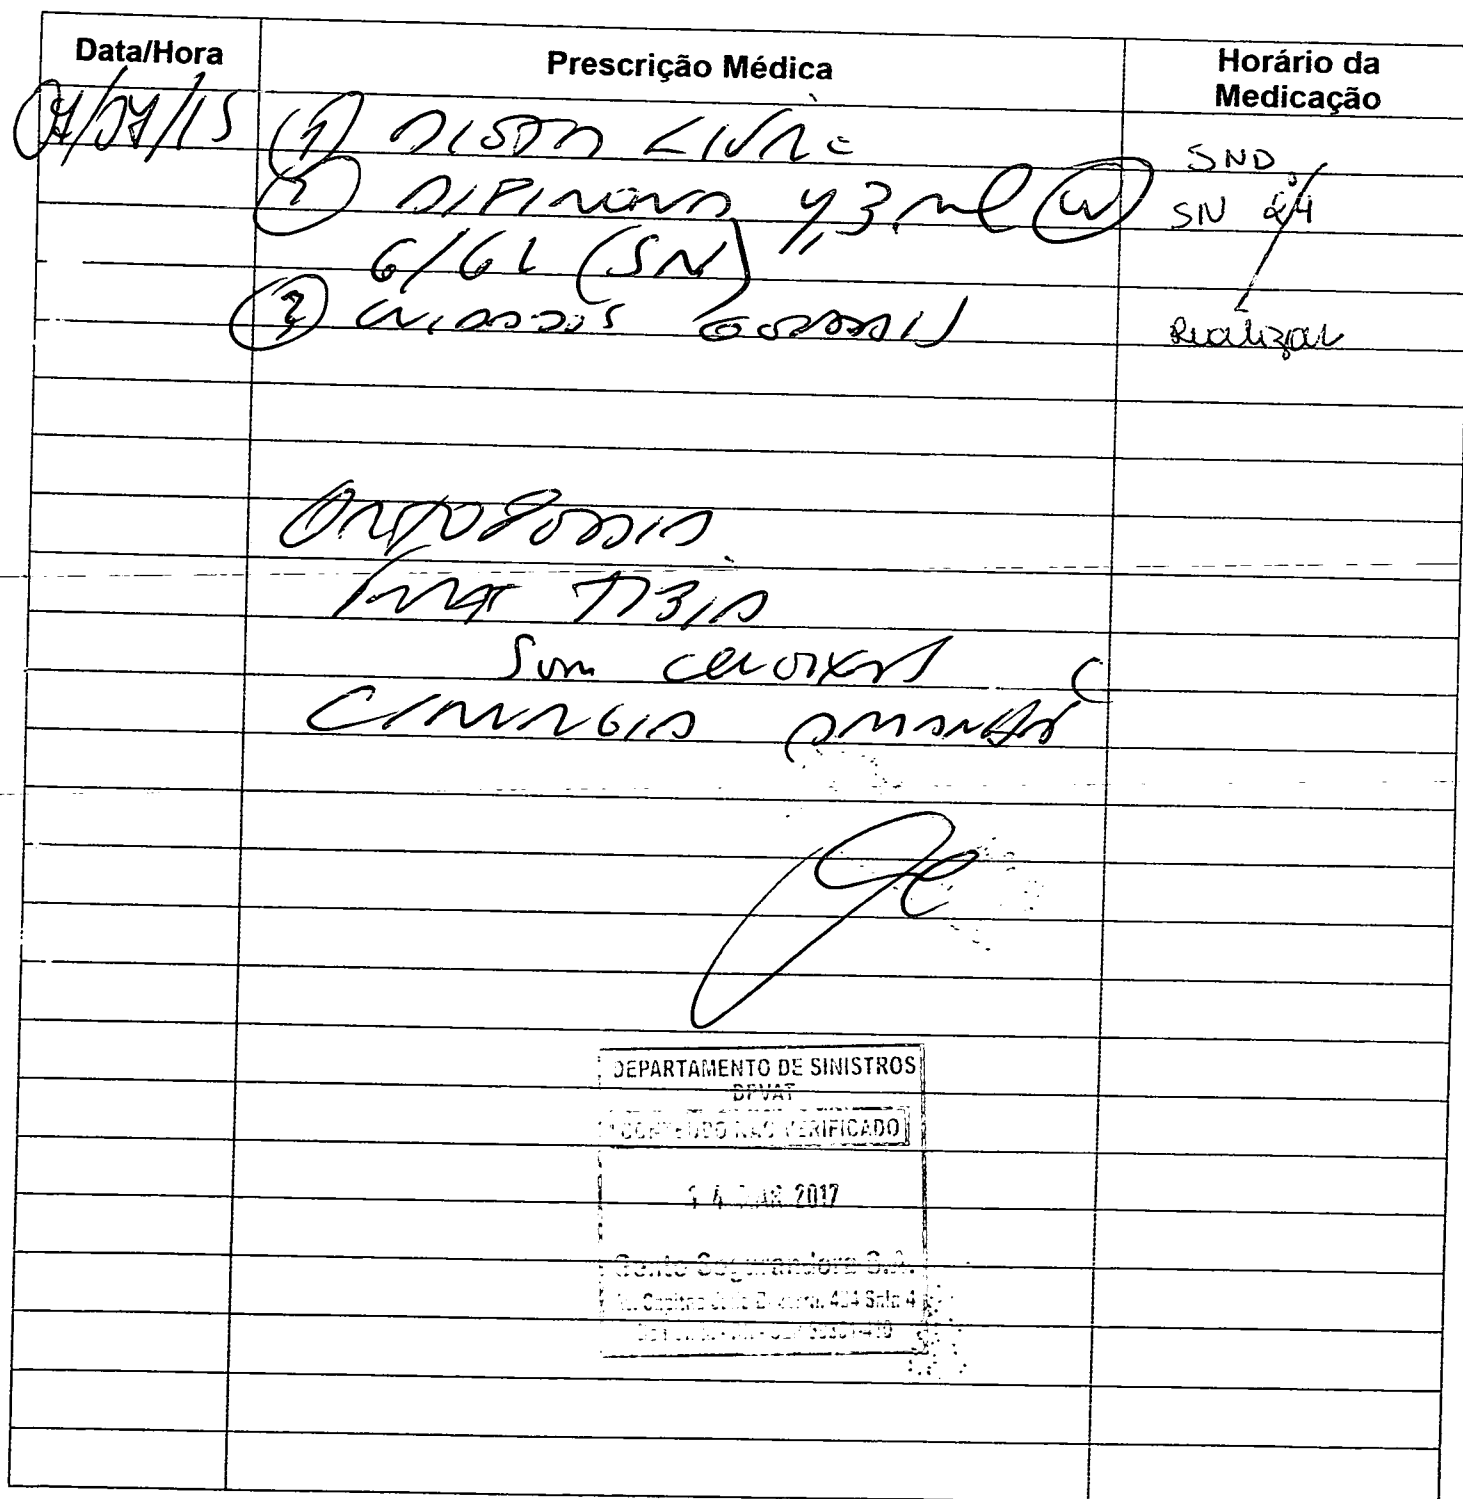 Data/Hora Prescrição Médica Horário da Medicação
07/07/15 (1) DIETA LIVRE SND
(2) DIPIRONA 4,3 ml SN 24
6/6h (SN)
(3) CUIDADOS GERAIS Realizar
ORTOPEDIA
FRAT TIBIA
Sem
CIRURGIA AMANHÃ
DEPARTAMENTO DE SINISTROS
DPVAT
CONTEUDO NÃO VERIFICADO
2017
Gente Seguradora S.A.
Sala 4